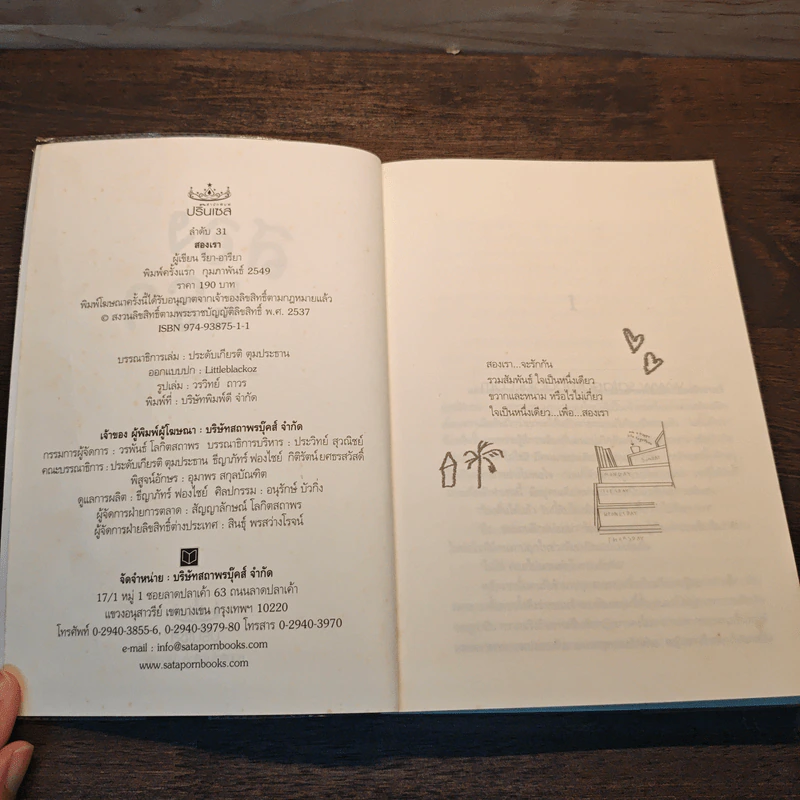 สำนักพิมพ์
ปริ๊นเซส
ลำดับ 31
สองเรา
ผู้เขียน รียา-อารียา
พิมพ์ครั้งแรก กุมภาพันธ์ 2549
ราคา 190 บาท
พิมพ์โฆษณาครั้งนี้ได้รับอนุญาตจากเจ้าของลิขสิทธิ์ตามกฎหมายแล้ว
© สงวนลิขสิทธิ์ตามพระราชบัญญัติลิขสิทธิ์ พ.ศ. 2537
ISBN 974-93875-1-1
บรรณาธิการเล่ม : ประดับเกียรติ ตุมประธาน
ออกแบบปก : Littleblackoz
รูปเล่ม : วรวิทย์ ถาวร
พิมพ์ที่ : บริษัทพิมพ์ดี จำกัด
เจ้าของ ผู้พิมพ์ผู้โฆษณา : บริษัทสถาพรบุ๊คส์ จำกัด
กรรมการผู้จัดการ : วรพันธ์ โลกิตสถาพร บรรณาธิการบริหาร : ประวิทย์ สุวณิชย์
คณะบรรณาธิการ : ประดับเกียรติ ตุมประธาน ธีญาภัทร์ ฟองไชย์ กิติรัตน์ยศธรสวัสดิ์
พิสูจน์อักษร : อุมาพร สกุลบัณฑิต
ดูแลการผลิต : ธีญาภัทร์ ฟองไชย์ ศิลปกรรม : อนุรักษ์ บัวกิ่ง
ผู้จัดการฝ่ายการตลาด : สัญญาลักษณ์ โลกิตสถาพร
ผู้จัดการฝ่ายลิขสิทธิ์ต่างประเทศ : สินธุ์ พรสว่างโรจน์
จัดจำหน่าย : บริษัทสถาพรบุ๊คส์ จำกัด
17/1 หมู่ 1 ซอยลาดปลาเค้า 63 ถนนลาดปลาเค้า
แขวงอนุสาวรีย์ เขตบางเขน กรุงเทพฯ 10220
โทรศัพท์ 0-2940-3855-6, 0-2940-3979-80 โทรสาร 0-2940-3970
e-mail : info@satapornbooks.com
www.satapornbooks.com
สองเรา...จะรักกัน
รวมสัมพันธ์ ใจเป็นหนึ่งเดียว
ขวากและหนาม หรือไรไม่เกี่ยว
ใจเป็นหนึ่งเดียว...เพื่อ...สองเรา